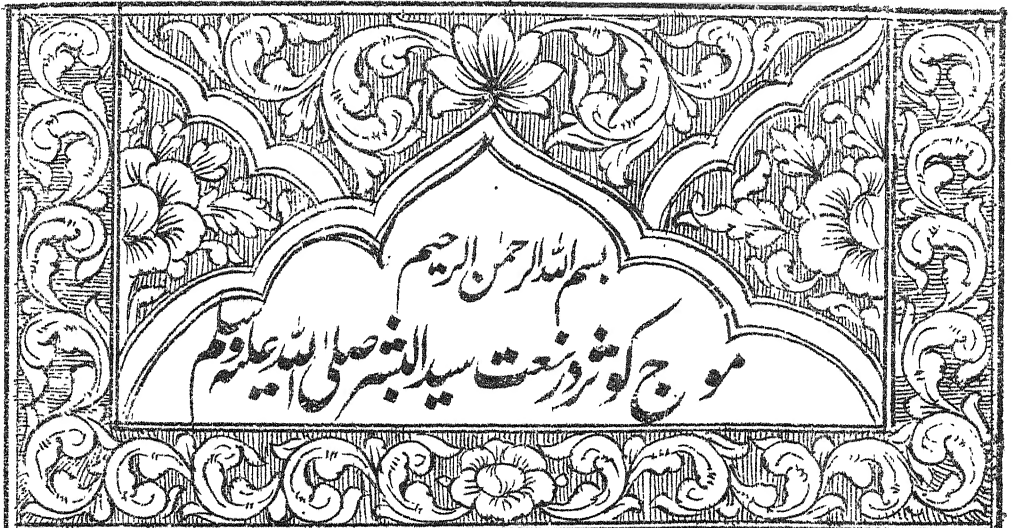 بسم الله الرحمٰن الرحیم
موج کوثر در نعت سید البشر صلی الله علیه وسلم